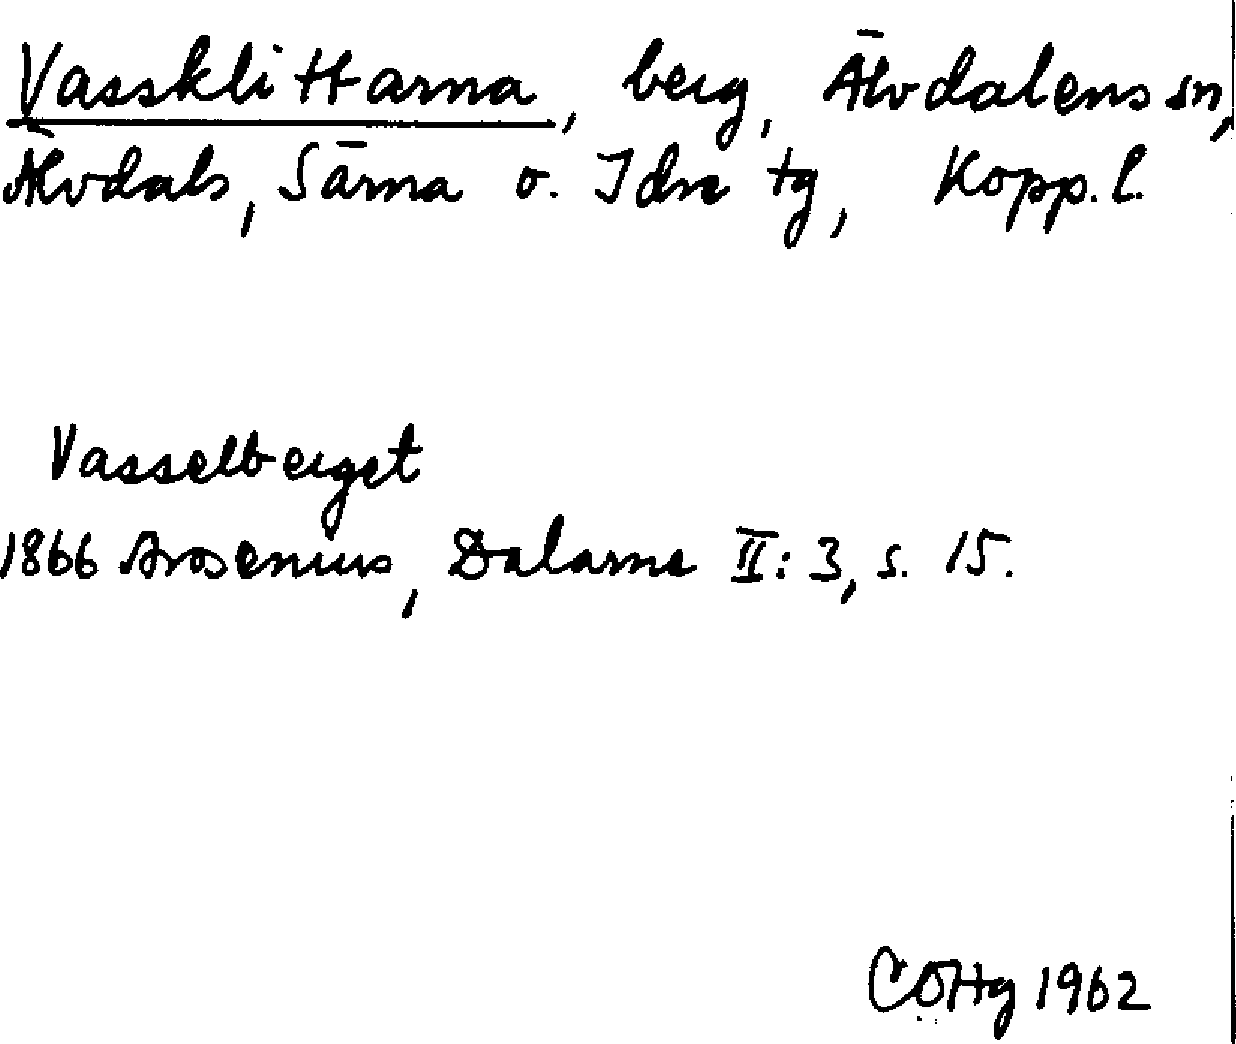 Vassklittarna, berg, Älvdalens sn,
Älvdals, Särna o. Idre tg, Kopp. l.
Vasselberget
1866 Arosenius, Dalarne II: 3, s. 15.
CÖHg 1962